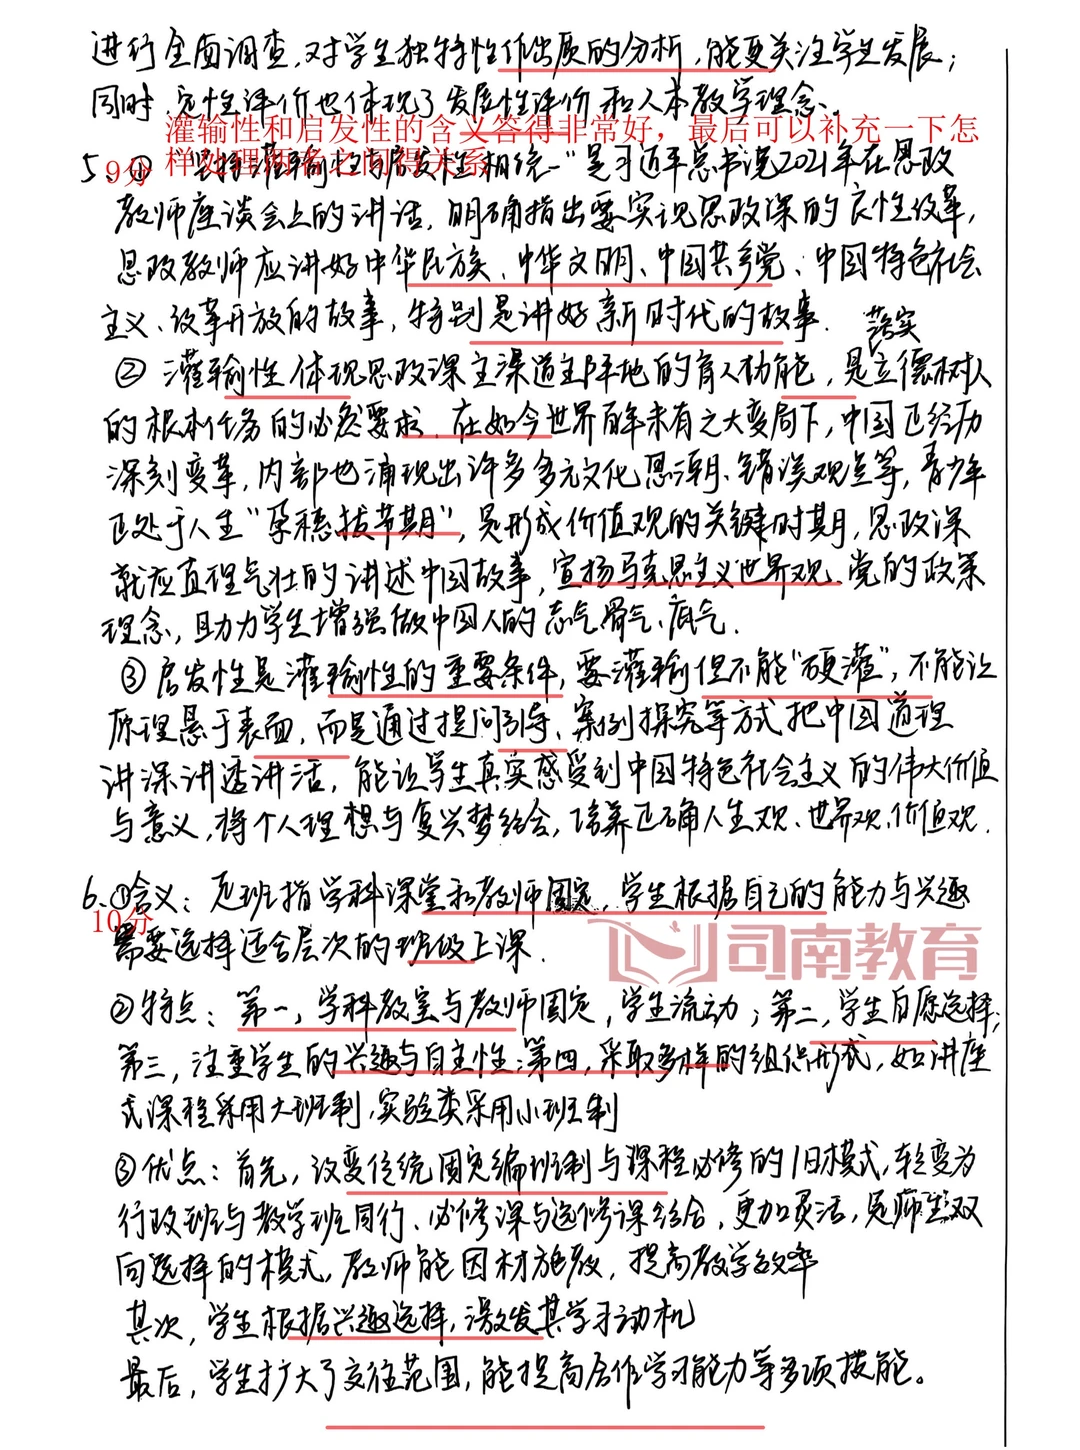 进行全面调查,对学生独特性作出质的分析,能更关注学生发展;
同时,定性评价也体现了发展性评价和人本教学理念。
灌输性和启发性的含义答得非常好，最后可以补充一下怎
样处理两者之间得关系
9分
5、① "坚持灌输性与启发性相统一"是习近平总书记2021年在思政
教师座谈会上的讲话,明确指出要实现思政课的良性改革,
思政教师应讲好中华民族、中华文明、中国共产党、中国特色社会
主义、改革开放的故事,特别是讲好新时代的故事.
落实
② 灌输性体现思政课主渠道主阵地的育人功能,是立德树人
的根本任务的必然要求.在如今世界百年未有之大变局下,中国已经历
深刻变革,内部也涌现出许多多元文化思潮、错误观点等,青少年
正处于人生"孕穗拔节期",是形成价值观的关键时期,思政课
就应直理气壮的讲述中国故事,宣扬马克思主义世界观、党的政策
理念,助力学生增强做中国人的志气骨气、底气.
③启发性是灌输性的重要条件,要灌输但不能"硬灌",不能让
原理悬于表面,而是通过提问引导、案例探究等方式把中国道理
讲深讲透讲活,能让学生真实感受到中国特色社会主义的伟大价值
与意义,将个人理想与复兴梦结合,培养正确人生观、世界观、价值观.
6、①含义:走班指学科课堂和教师固定,学生根据自己的能力与兴趣
10分
需要选择适合层次的班级上课.
司南教育
②特点:第一,学科教室与教师固定,学生流动;第二,学生自愿选择;
第三,注重学生的兴趣与自主性;第四,采取多样的组织形式,如讲座
式课程采用大班制,实验类采用小班制
③优点:首先,改变传统固定编班制与课程必修的旧模式,转变为
行政班与教学班同行、必修课与选修课结合,更加灵活,是师生双
向选择的模式,教师能因材施教,提高教学效率
其次,学生根据兴趣选择,激发其学习动机
最后,学生扩大了交往范围,能提高合作学习能力等多项技能。